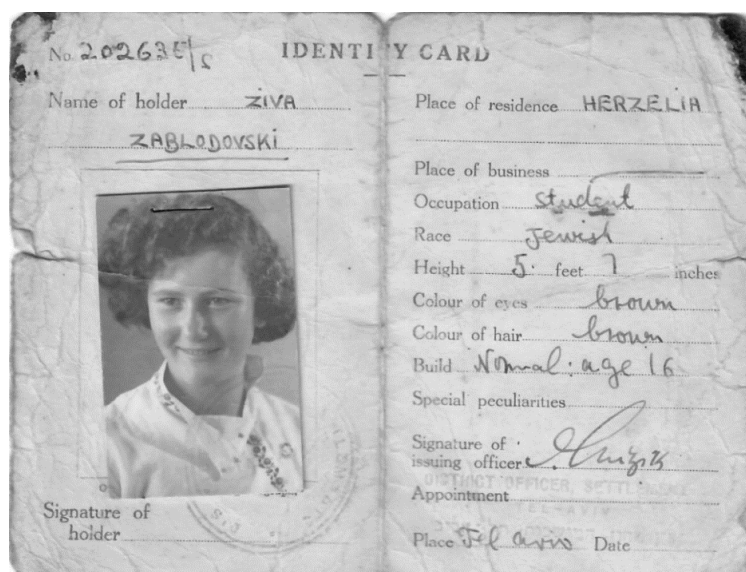 No 202635/S
IDENTITY CARD
Name of holder ZIVA
ZABLODOVSKI
Signature of
holder
Place of residence HERZELIA
Place of business
Occupation student
Race Jewish
Height 5 feet 7 inches
Colour of eyes brown
Colour of hair brown
Build Normal: age 16
Special peculiarities
Signature of
issuing officer
DISTRICT OFFICER, SETTLEMENT
TEL-AVIV
Appointment
Place Tel aviv Date